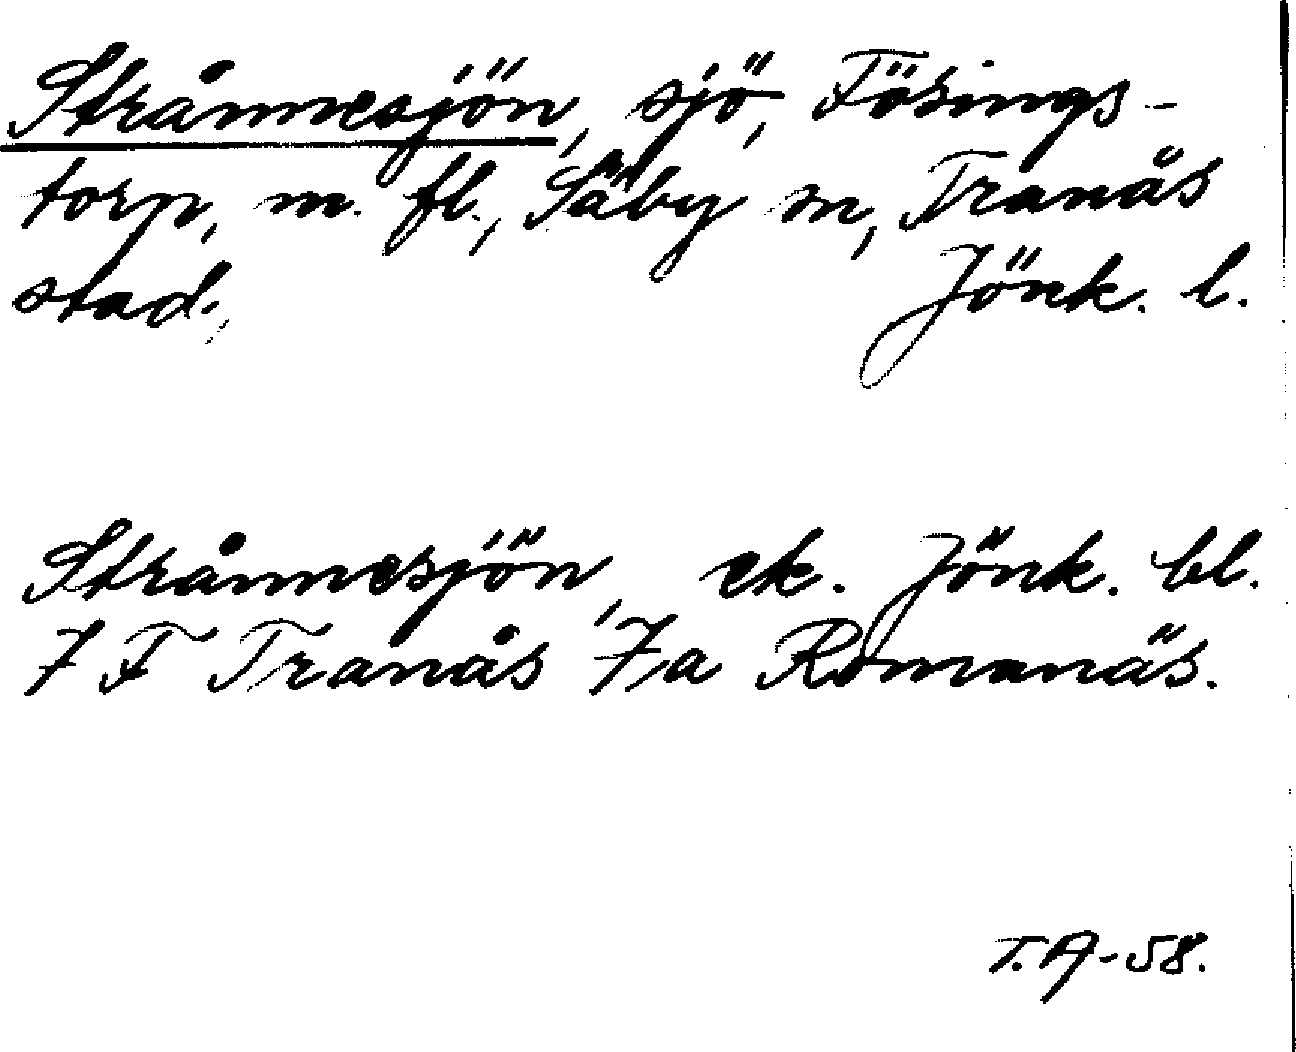 Strånnesjön, sjö, Fösings-
torp, m. fl., Säby sn, Tranås
stad, Jönk. l.
Strånnesjön, ek. Jönk. bl.
7 F Tranås 7a Romanäs.
T.A-58.